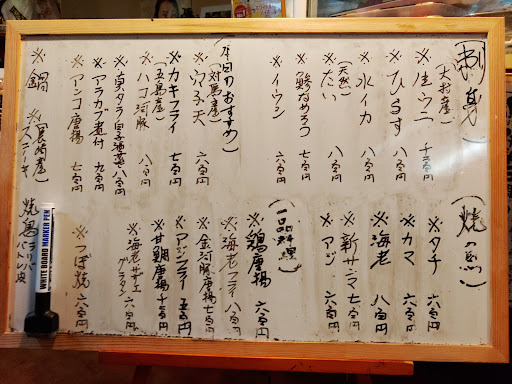 刺身
(大村産)
※生ウニ 千二百円
※ひらす 八百円
※水イカ 八百円
(天然)
※たい 八百円
※鯵なめろう 七百円
※イワシ 六百円
(本日のおすすめ)
(対馬産)
※穴子天 六百円
※カキフライ 七百円
(五島産)
※ハコ河豚 八百円
※真タラ白子 八百円
※アラカブ煮付 九百円
※アンコ唐揚 七百円
※鍋
※(長崎産)
ステーキ
(焼の魚)
※タチ 六百円
※カマ 六百円
※海老 八百円
※新サンマ 七百円
※アジ 六百円
(一品料理)
※鶏唐揚 六百円
※海老フライ 八百円
※金河豚唐揚 七百円
※アジフライ 五百円
※甘鯛唐揚 千百円
※海老サザエ
グラタン 六百円
※つぼ焼 六百円
焼鳥
WHITE BOARD MARKER PEN